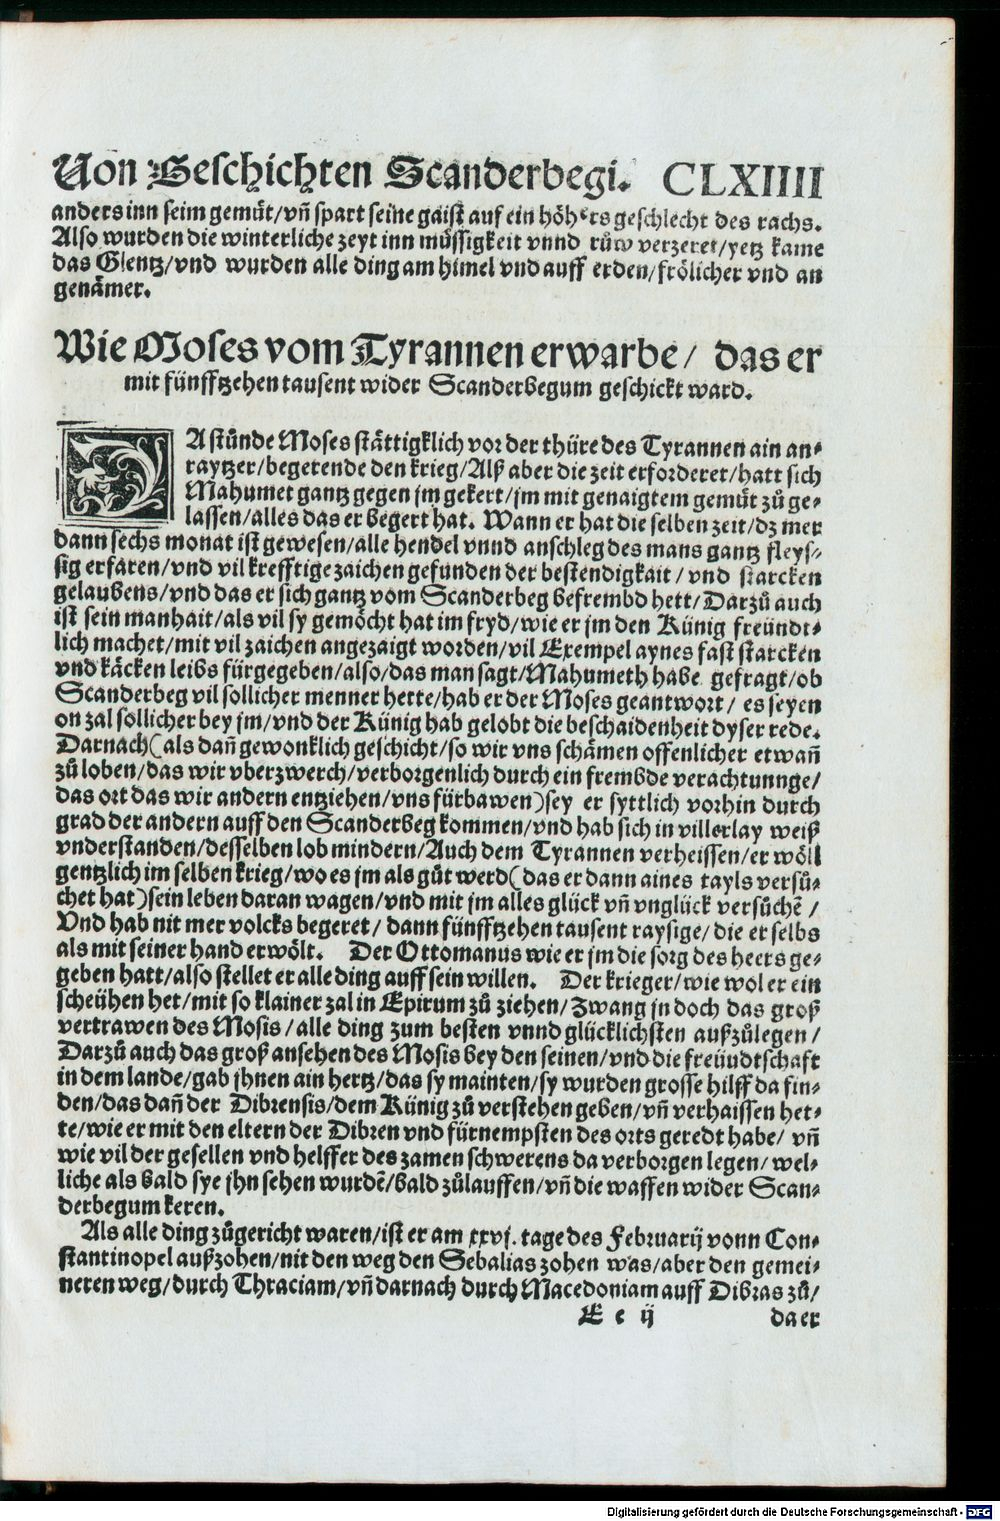 Von Geschichten Scanderbegi. CLXIIII
anders inn seim gemüt/vñ spart seine gaist auf ein höhers geschlecht des rachs.
Also wurden die winterliche zeyt inn müssigkeit vnnd růw verzeret/yetz kame
das Glentz/vnd wurden alle ding am himel vnd auff erden/frölicher vnd an
genämer.
Wie Moses vom Tyrannen erwarbe/ das er
mit fünfftzehen tausent wider Scanderbegum geschickt ward.
DA stůnde Moses stättigklich vor der thüre des Tyrannen ain an-
raytzer/begerende den krieg/Alß aber die zeit erforderet/hatt sich
Mahumet gantz gegen jm gekert/jm mit genaigtem gemüt zů ge-
lassen/alles das er begert hat. Wann er hat die selben zeit/dz mer
dann sechs monat ist gewesen/alle hendel vnnd anschleg des mans gantz fleys-
sig erfaren/vnd vil krefftige zaichen gefunden der bestendigkait/vnd starcken
gelaubens/vnd das er sich gantz vom Scanderbeg befrembd hett/Darzů auch
ist sein manhait/als vil sy gemöcht hat im fryd/wie er jm den Künig freündt-
lich machet/mit vil zaichen angezaigt worden/vil Exempel aynes fast starcken
vnd käcken leibs fürgegeben/also/das man sagt/Mahumeth habe gefragt/ob
Scanderbeg vil sollicher menner hette/hab er der Moses geantwort/ es seyen
on zal sollicher bey jm/vnd der Künig hab gelobt die beschaidenheit dyser rede.
Darnach(als dañ gewonklich geschicht/so wir vns schämen offenlicher etwañ
zů loben/das wir vberzwerch/verborgenlich durch ein frembde verachtunnge/
das ort das wir andern entziehen/vns fürbawen)sey er syttlich vorhin durch
grad der andern auff den Scanderbeg kommen/vnd hab sich in villerlay weiß
vnderstanden/desselben lob mindern/Auch dem Tyrannen verheissen/er wöll
gentzlich im selben krieg/wo es jm als gůt werd(das er dann aines tayls versů-
chet hat)sein leben daran wagen/vnd mit jm alles glück vñ vnglück versůchē/
Vnd hab nit mer volcks begeret/ dann fünfftzehen tausent raysige/die er selbs
als mit seiner hand erwölt. Der Ottomanus wie er jm die sorg des heers ge-
geben hatt/also stellet er alle ding auff sein willen. Der krieger/wie wol er ein
scheühen het/mit so klainer zal in Epirum zů ziehen/Zwang jn doch das groß
vertrawen des Mosis/alle ding zum besten vnnd glücklichsten außzůlegen/
Darzů auch das groß ansehen des Mosis bey den seinen/vnd die freüudtschaft
in dem lande/gab jhnen ain hertz/das sy mainten/sy wurden grosse hilff da fin-
den/das dañ der Dibrensis/dem Künig zů verstehen geben/vñ verhaissen het-
te/wie er mit den eltern der Dibren vnd fürnempsten des orts geredt habe/ vñ
wie vil der gesellen vnd helffer des zamen schwerens da verborgen legen/wel-
liche als bald sye jhn sehen wurdē/bald zůlauffen/vñ die waffen wider Scan-
derbegum keren.
Als alle ding zůgericht waren/ist er am xxvj. tage des Februarij vonn Con-
stantinopel außzohen/nit den weg den Sebalias zohen was/aber den gemei-
neren weg/durch Thraciam/vñ darnach durch Macedoniam auff Dibras zů/
E e ij da er
Digitalisierung gefördert durch die Deutsche Forschungsgemeinschaft - DFG